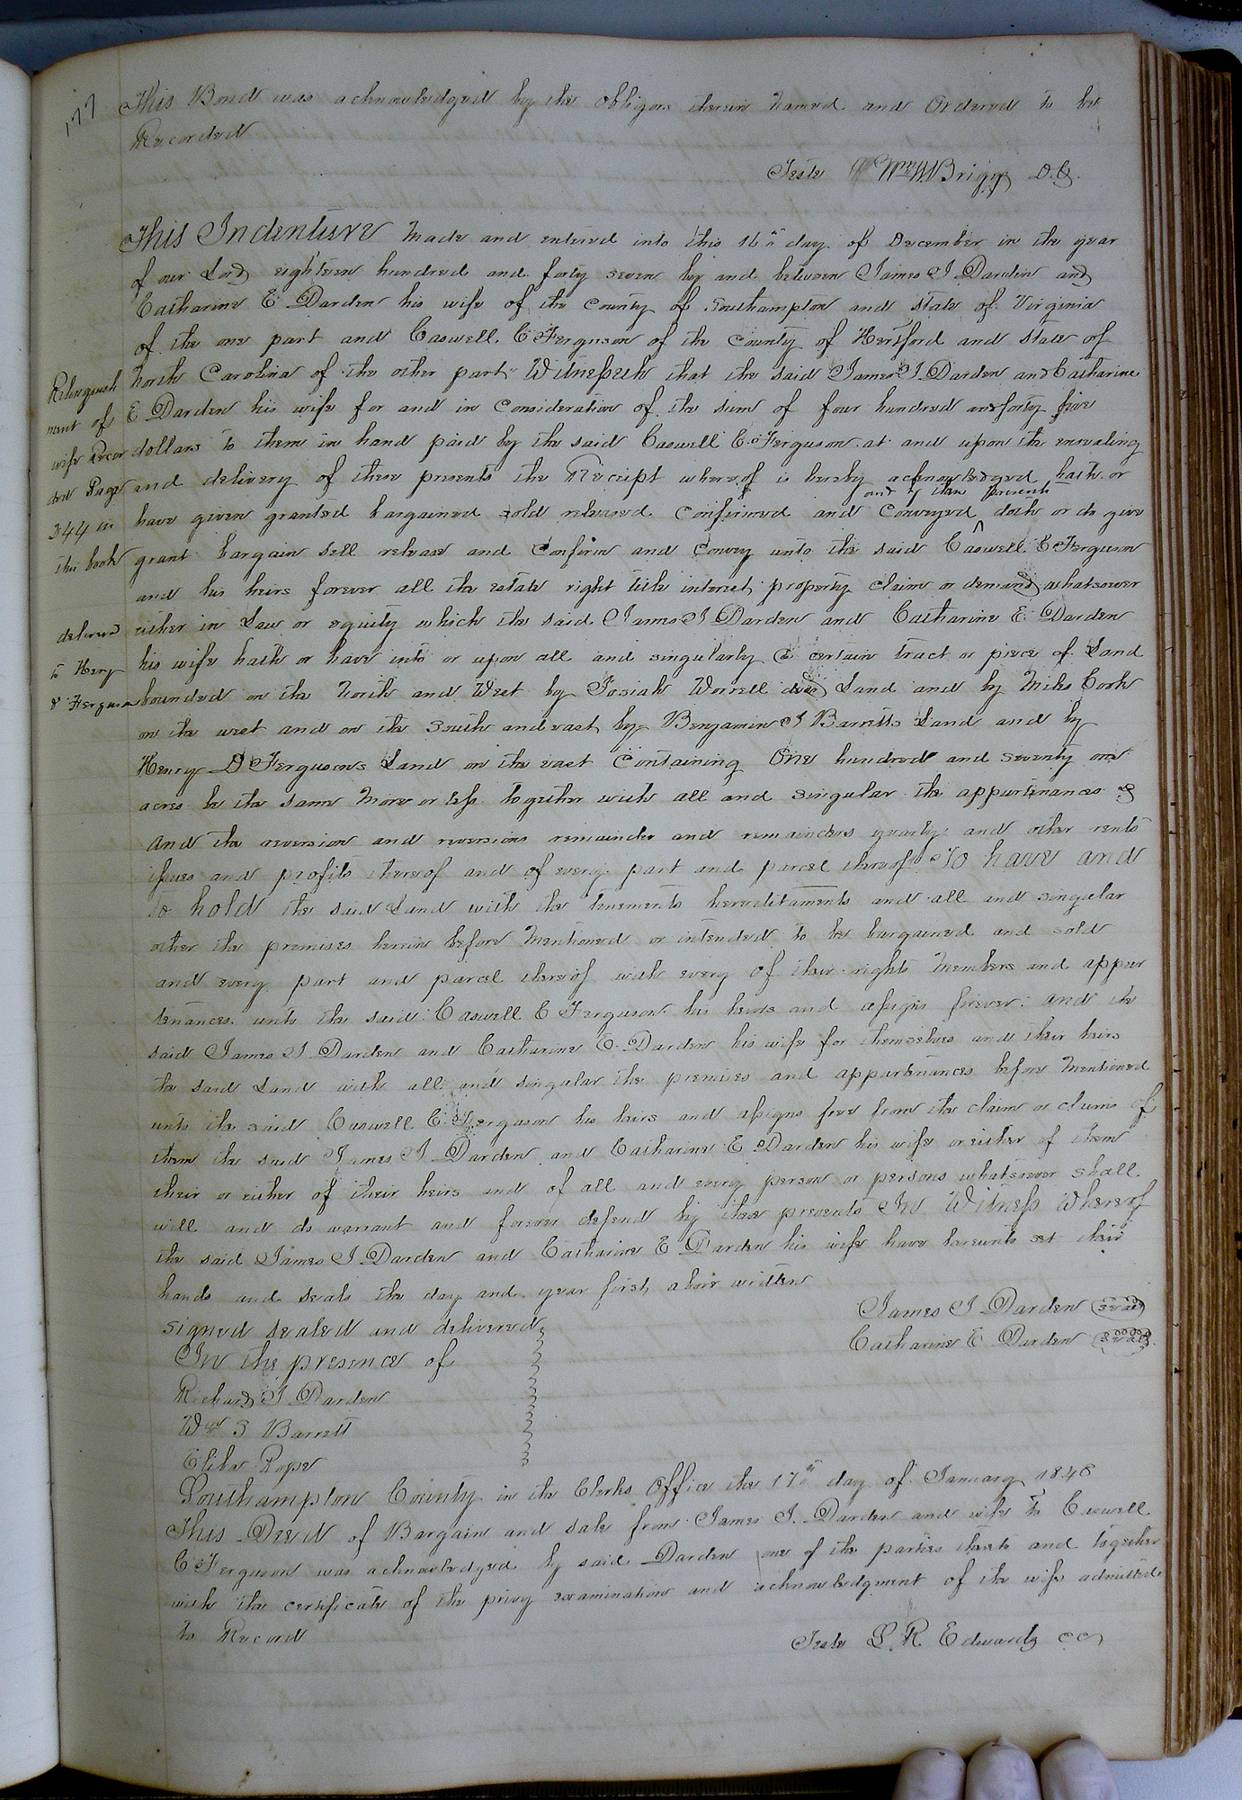 177
This Bond was acknowledged by the obligors therein named and Ordered to be
Recorded
Teste Wm W Briggs D.C.
This Indenture Made and entered into this 16th day of December in the year
of our Lord eighteen hundred and forty seven by and between James J Darden and
Catharine E Darden his wife of the County of Southampton and state of Virginia
of the one part and Caswell C Ferguson of the County of Hertford and state of
North Carolina of the other part Witnesseth that the said James J Darden and Catharine
E Darden his wife for and in Consideration of the sum of four hundred and forty five
dollars to them in hand paid by the said Caswell C Ferguson at and upon the ensealing
and delivery of these presents the Receipt whereof is hereby acknowledged hath or
have given granted bargained sold released Confirmed and Conveyed and by these presents doth or do give
grant bargain sell release and Confirm and Convey unto the said Caswell C Ferguson
and his heirs forever all the estate right title interest property claim or demand whatsoever
either in Law or equity which the said James J Darden and Catharine E Darden
his wife hath or have into or upon all and singularly a certain tract or piece of Land
bounded on the North and West by Josiah Worrell decd Land and by Miles Cook
on the west and on the South and east by Benjamin J Barretts Land and by
Henry D Fergusons Land on the east Containing One hundred and seventy one
acres be the same More or less together with all and singular the appurtenances &
And the reversion and reversions remainder and remainders yearly and other rents
issues and profits thereof and of every part and parcel thereof To have and
to hold the said Land with the tenements hereditaments and all and singular
other the premises herein before Mentioned or intended to be bargained and sold
and every part and parcel thereof with every of their rights Members and appur
tenances unto the said Caswell C Ferguson his heirs and assigns forever. And the
said James J Darden and Catharine E Darden his wife for themselves and their heirs
the said Land with all and singular the premises and appurtenances before Mentioned
unto the said Caswell C Ferguson his heirs and assigns free from the claim or claims of
them the said James J Darden and Catharine E Darden his wife or either of them
their or either of their heirs and of all and every person or persons whatsoever shall
will and do warrant and forever defend by these presents In Witness Whereof
the said James J Darden and Catharine E Darden his wife have hereunto set their
hands and seals the day and year first above written
James J Darden (Seal)
Catharine E Darden (Seal)
Signed sealed and delivered
In the presence of
Richard J Darden
Wm S Barrett
Elisha Pope
Southampton County in the Clerks Office the 17th day of January 1848
This Deed of Bargain and sale from James J. Darden and wife to Caswell
C Ferguson was acknowledged by said Darden one of the parties thereto and together
with the certificate of the privy examination and acknowledgment of the wife admitted
to Record
Teste L. R. Edwards CC
Relinquish
ment of
wife Recor
ded Page
344 in
this book
delivered
to Henry
D Ferguson